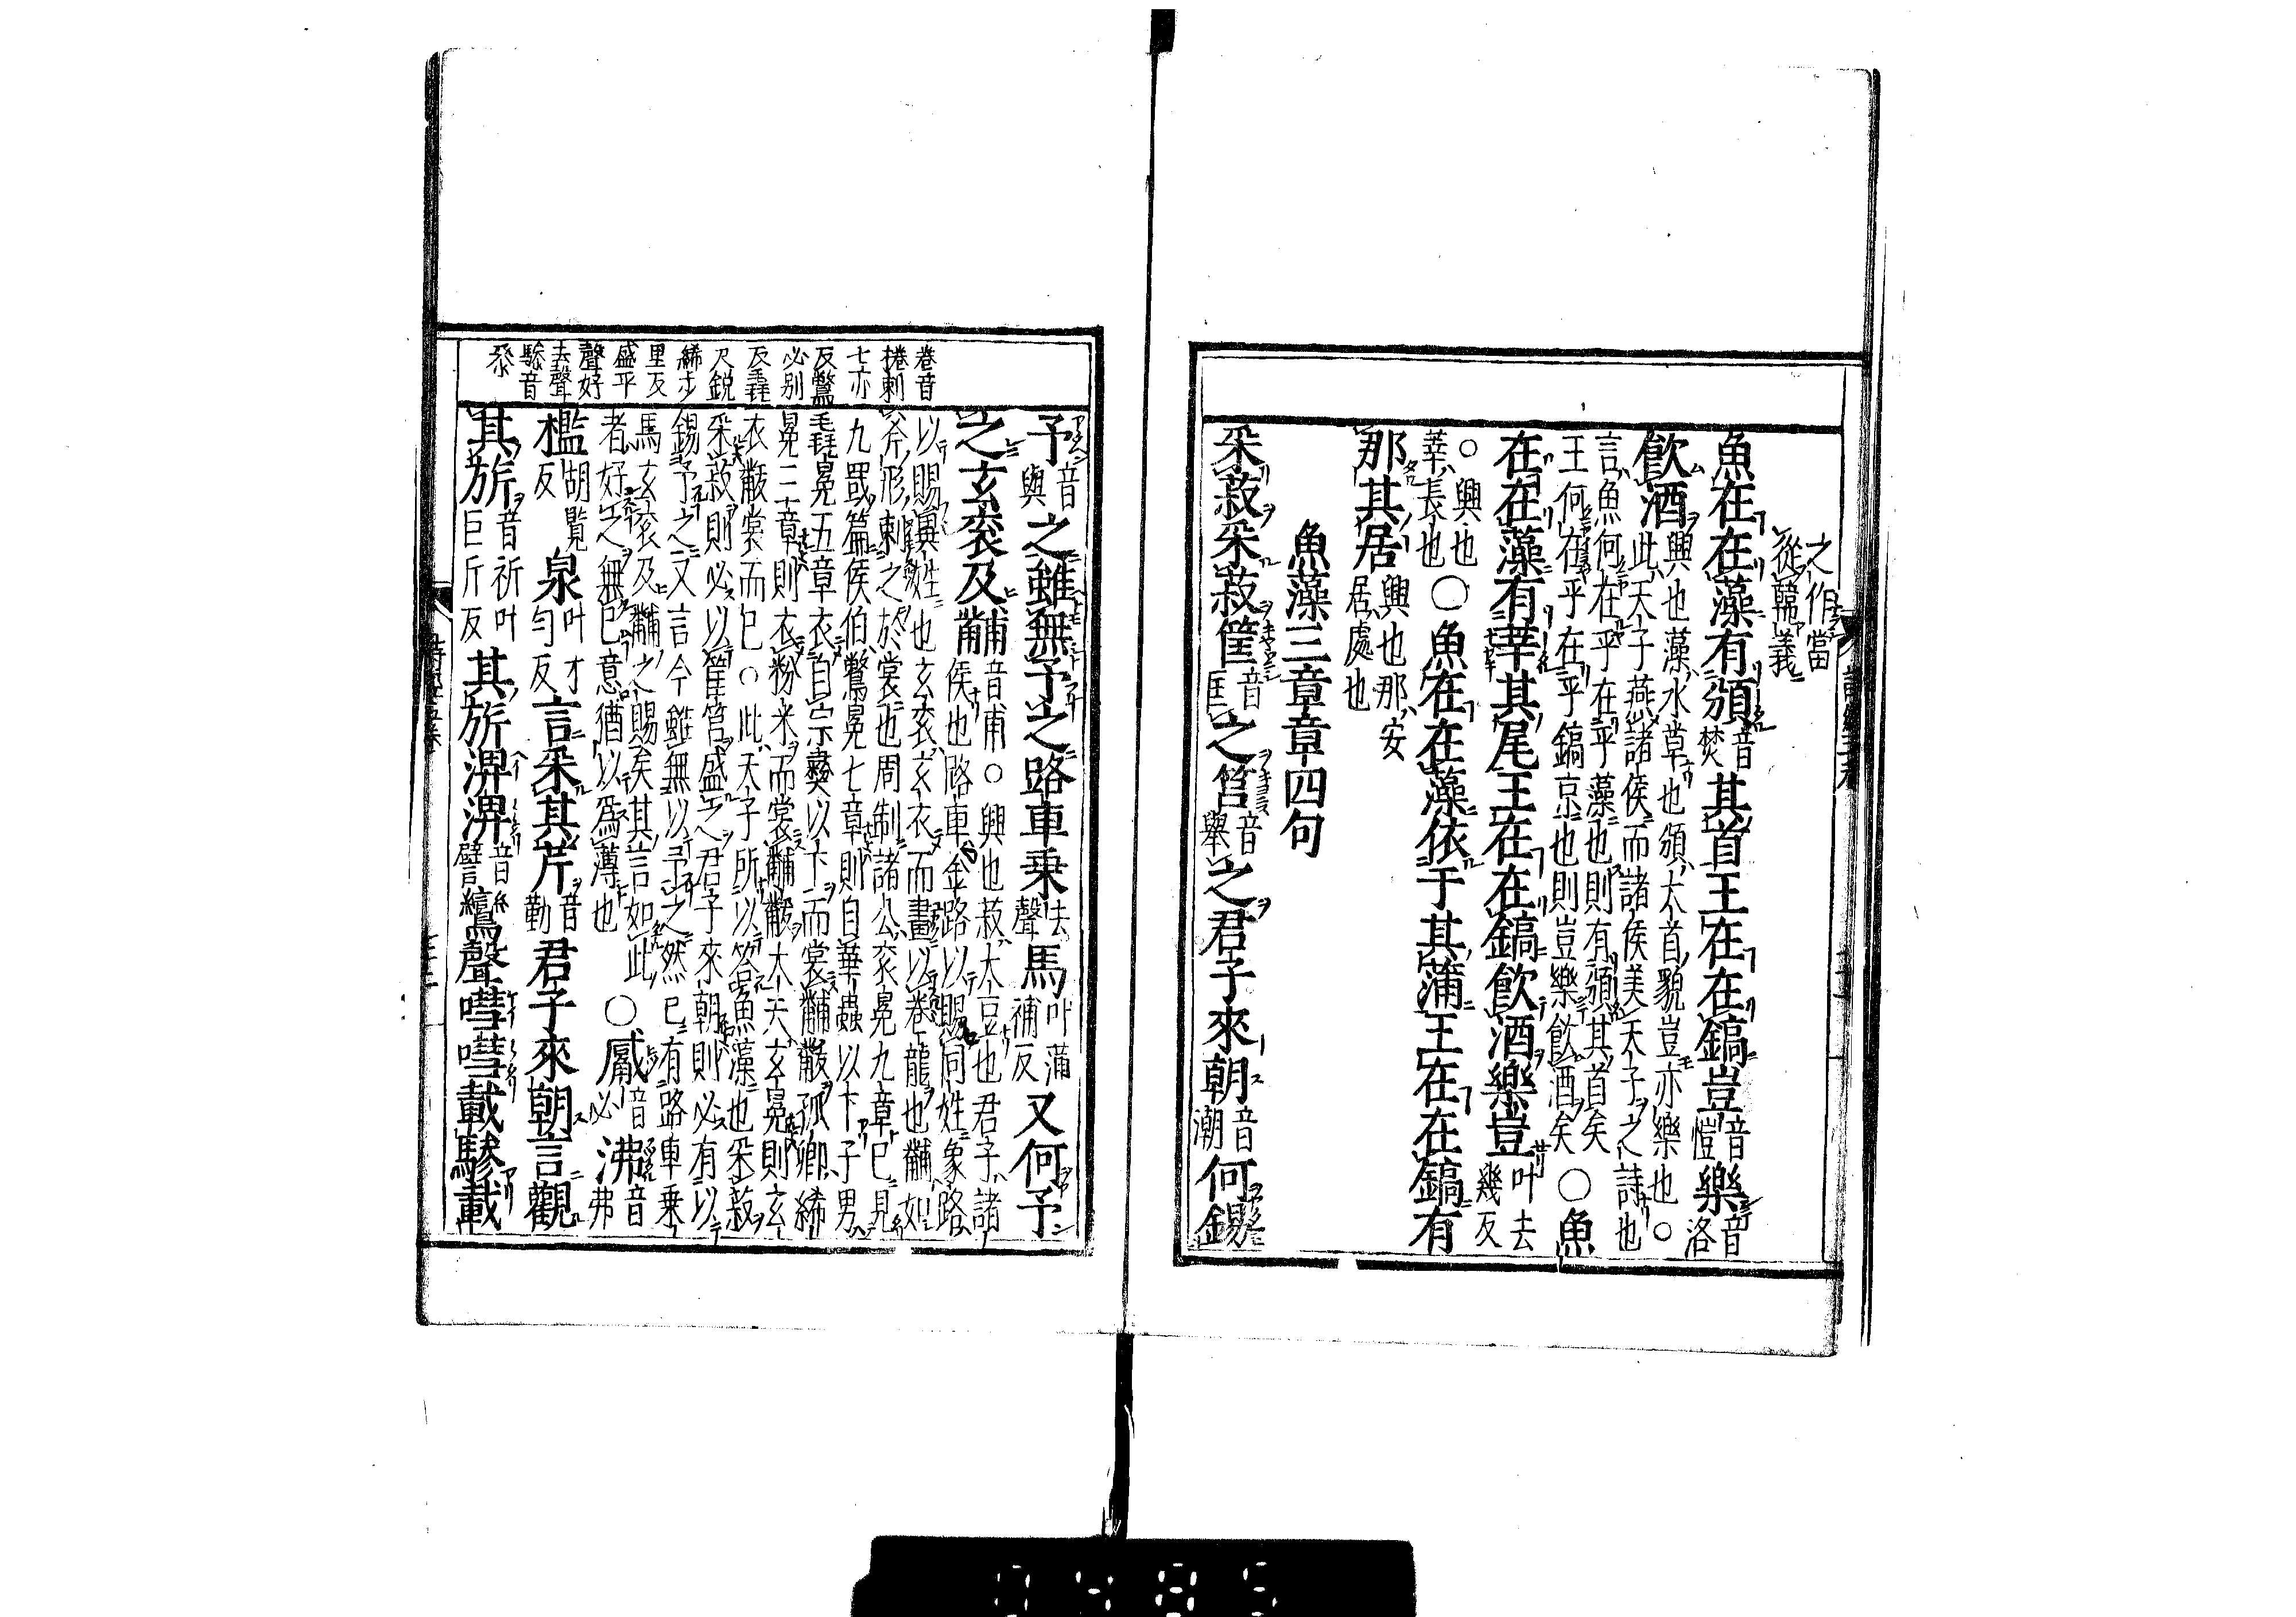 之作當
從韓義
魚在在藻有頒音焚其首王在在鎬豈音愷樂音洛
飲酒興也藻水草也頒大首貌豈亦樂也○
此天子燕諸侯而諸侯美天子之詩也
言魚何在乎在乎藻也則有頒其首矣
王何在乎在乎鎬京也則豈樂飲酒矣○魚
在在藻有莘其尾王在在鎬飲酒樂豈叶去幾反
○興也莘長也○魚在在藻依于其蒲王在在鎬有
那其居興也那安居處也
魚藻三章章四句
采菽采菽筐音匡之筥音舉之君子來朝音潮何錫
卷音
捲刺
七亦
反鷩
必別
反毳
尺銳
絺
里反
盛平
聲好
去聲
驂音
叅
予音與之雖無予之路車乘去聲馬叶蒲補反又何予
之玄袞及黼音甫○興也菽大豆也君子諸
侯也路車金路以賜同姓象路
以賜異姓也玄袞玄衣而畫以卷龍也黼如
斧形刺之於裳也周制諸公袞冕九章已見
九罭篇侯伯鷩冕七章則自華蟲以下子男
毳冕五章衣自宗彝以下而裳黼黻孤卿絺
冕三章則衣粉米而裳黼黻大夫玄冕則玄
衣黻裳而已○此天子所以答魚藻也采菽
采菽則必以筐筥盛之君子來朝則必有以
錫予之又言今雖無以予之然已有路車乘
馬玄袞及黼之賜矣其言如此
者好之無已意猶以爲薄也○觱音必沸音弗
檻胡覽反泉叶才勻反言采其芹音勤君子來朝言觀
其旂音祈叶巨斤反其旂淠淠音譬鸞聲嘒嘒載驂載